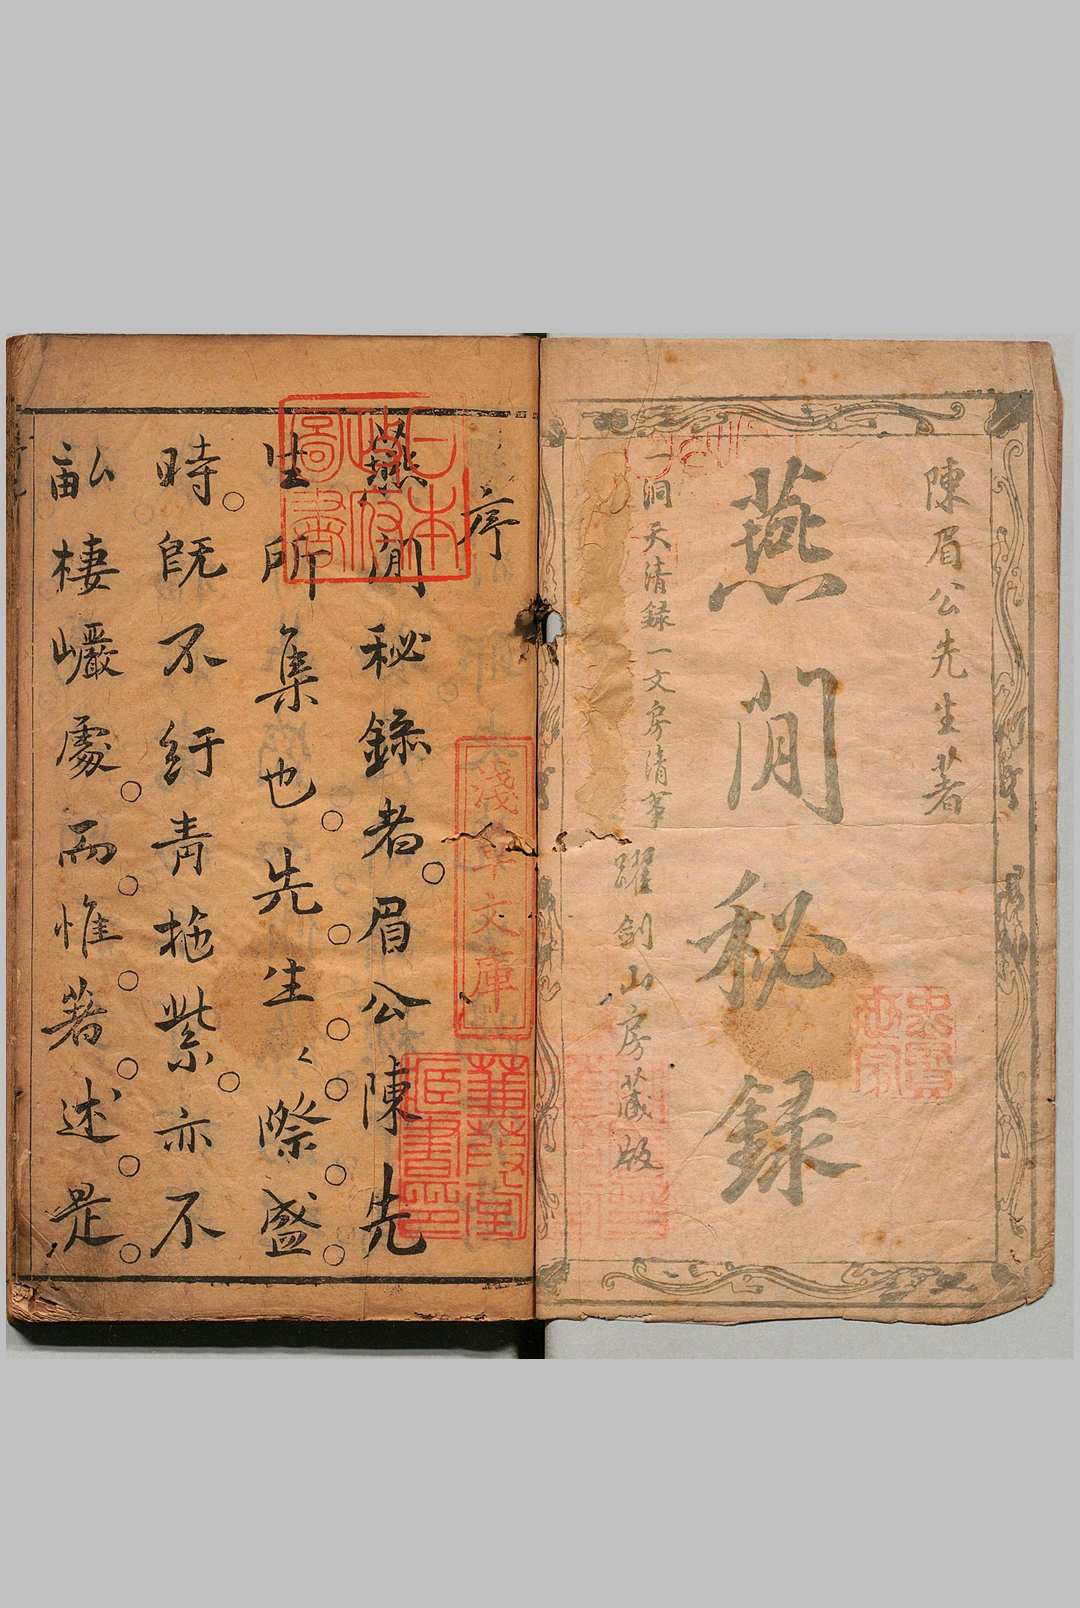 陳眉公先生著
燕閒秘録
一洞天清録一文房清
躍劍山房藏版
序
燕閒秘錄者眉公陳先
生所集也先生際盛
時旣不紆青拖紫亦不
畝棲巗處而惟著述是
日本政府圖書
淺草文庫